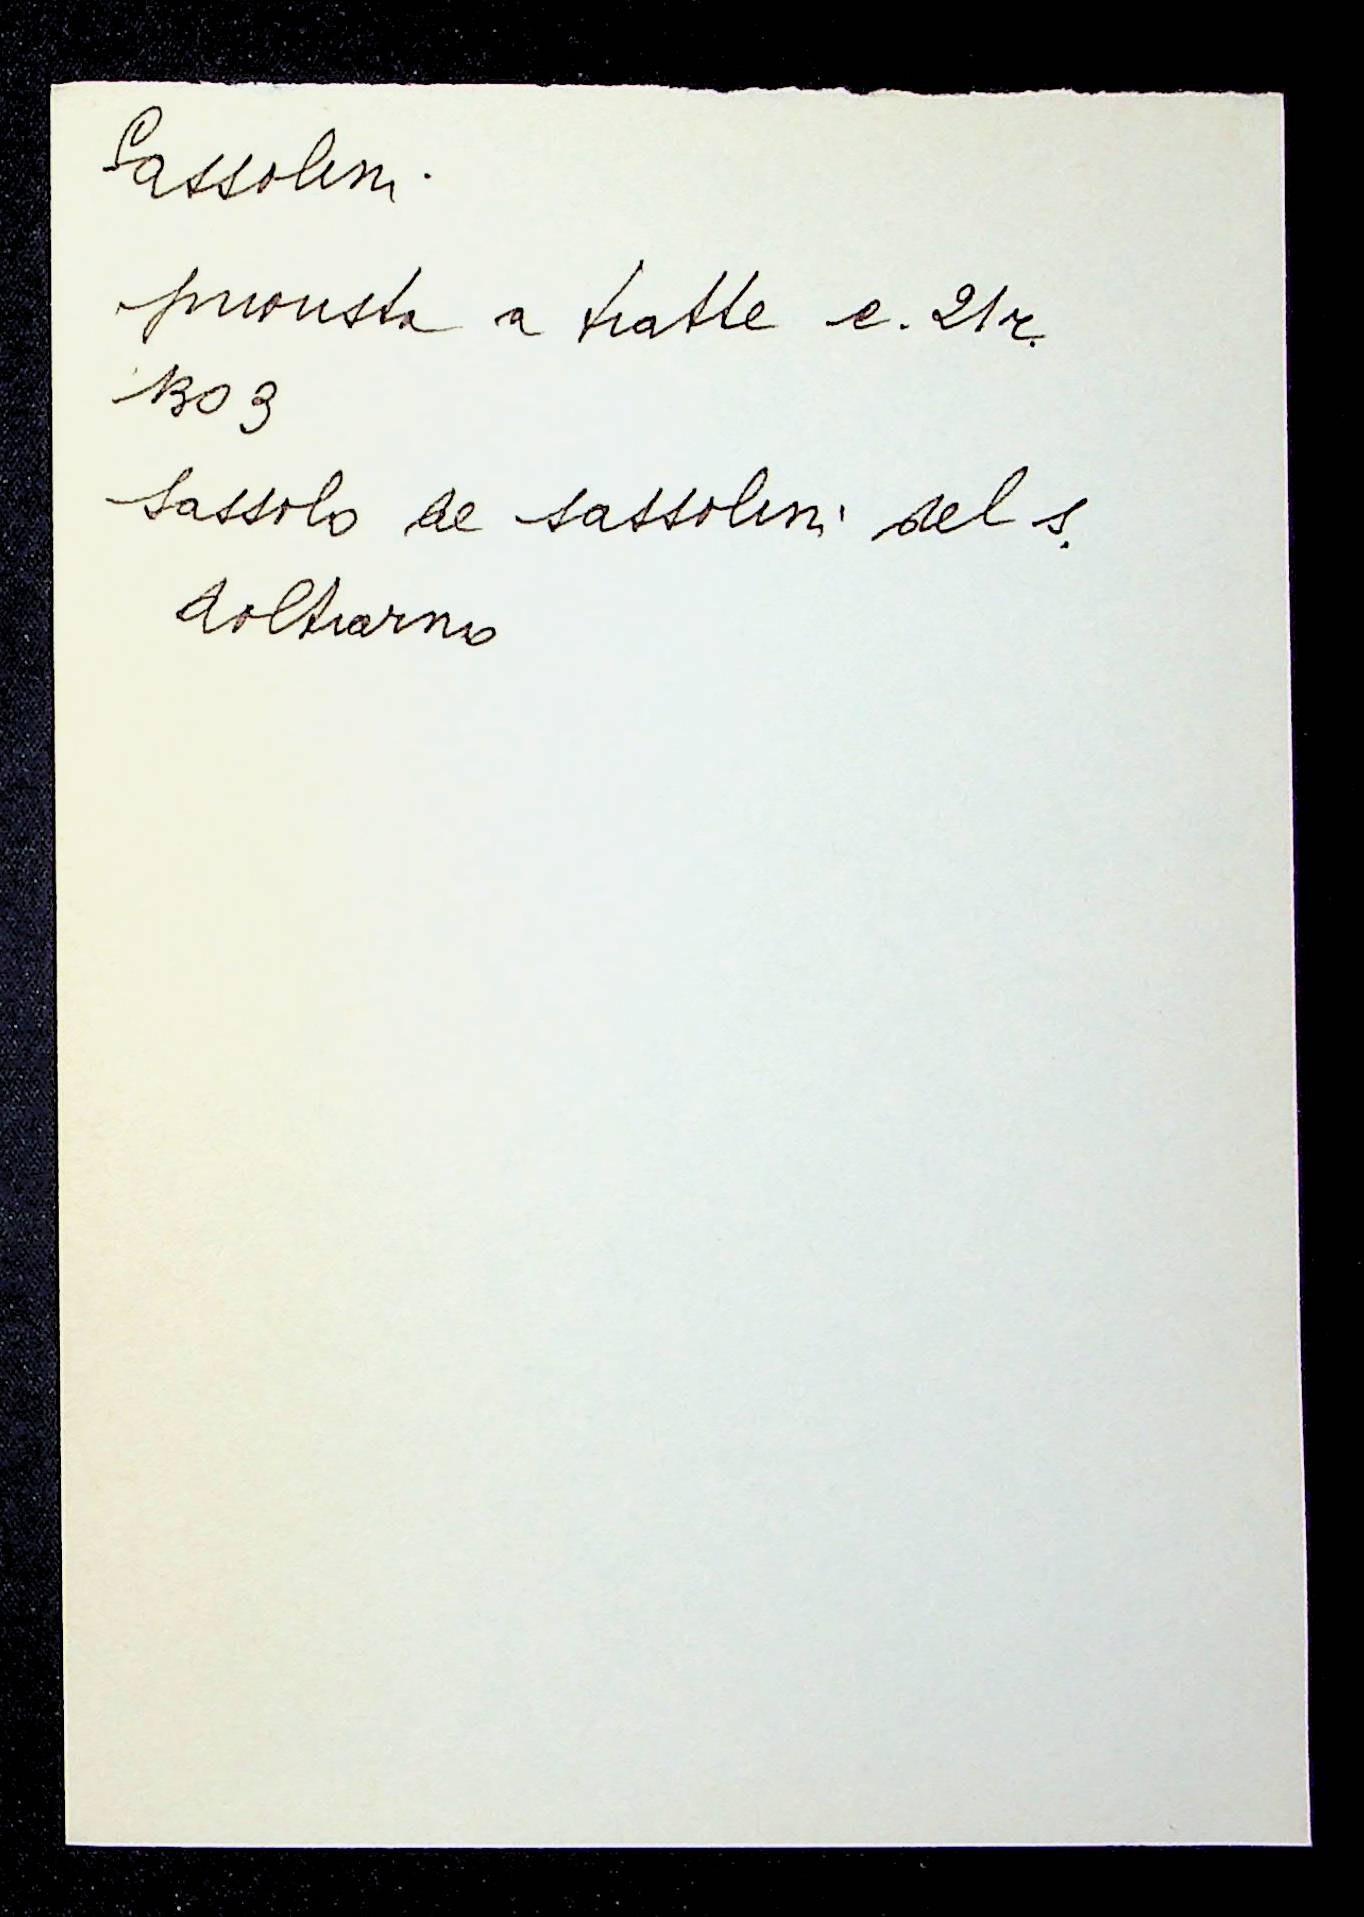 Sassolini
priorista a tratte c. 21r.
1303
Sassolo de sassolini del s.
doltrarno